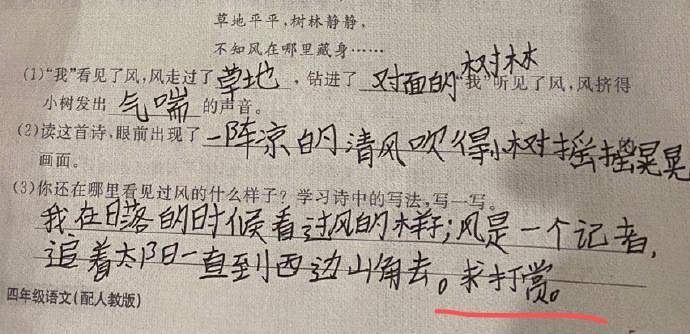 草地平平,树林静静,
不知风在哪里藏身……
(1)“我”看见了风,风走过了草地,钻进了对面的树林“我”听见了风,风挤得
小树发出气喘的声音。
(2)读这首诗,眼前出现了一阵凉的清风吹得小树摇摇晃晃
画面。
(3)你还在哪里看见过风的什么样子?学习诗中的写法,写一写。
我在日落的时候看过风的样子;风是一个记者,
追着太阳一直到西边山角去。求打赏。
四年级语文(配人教版)